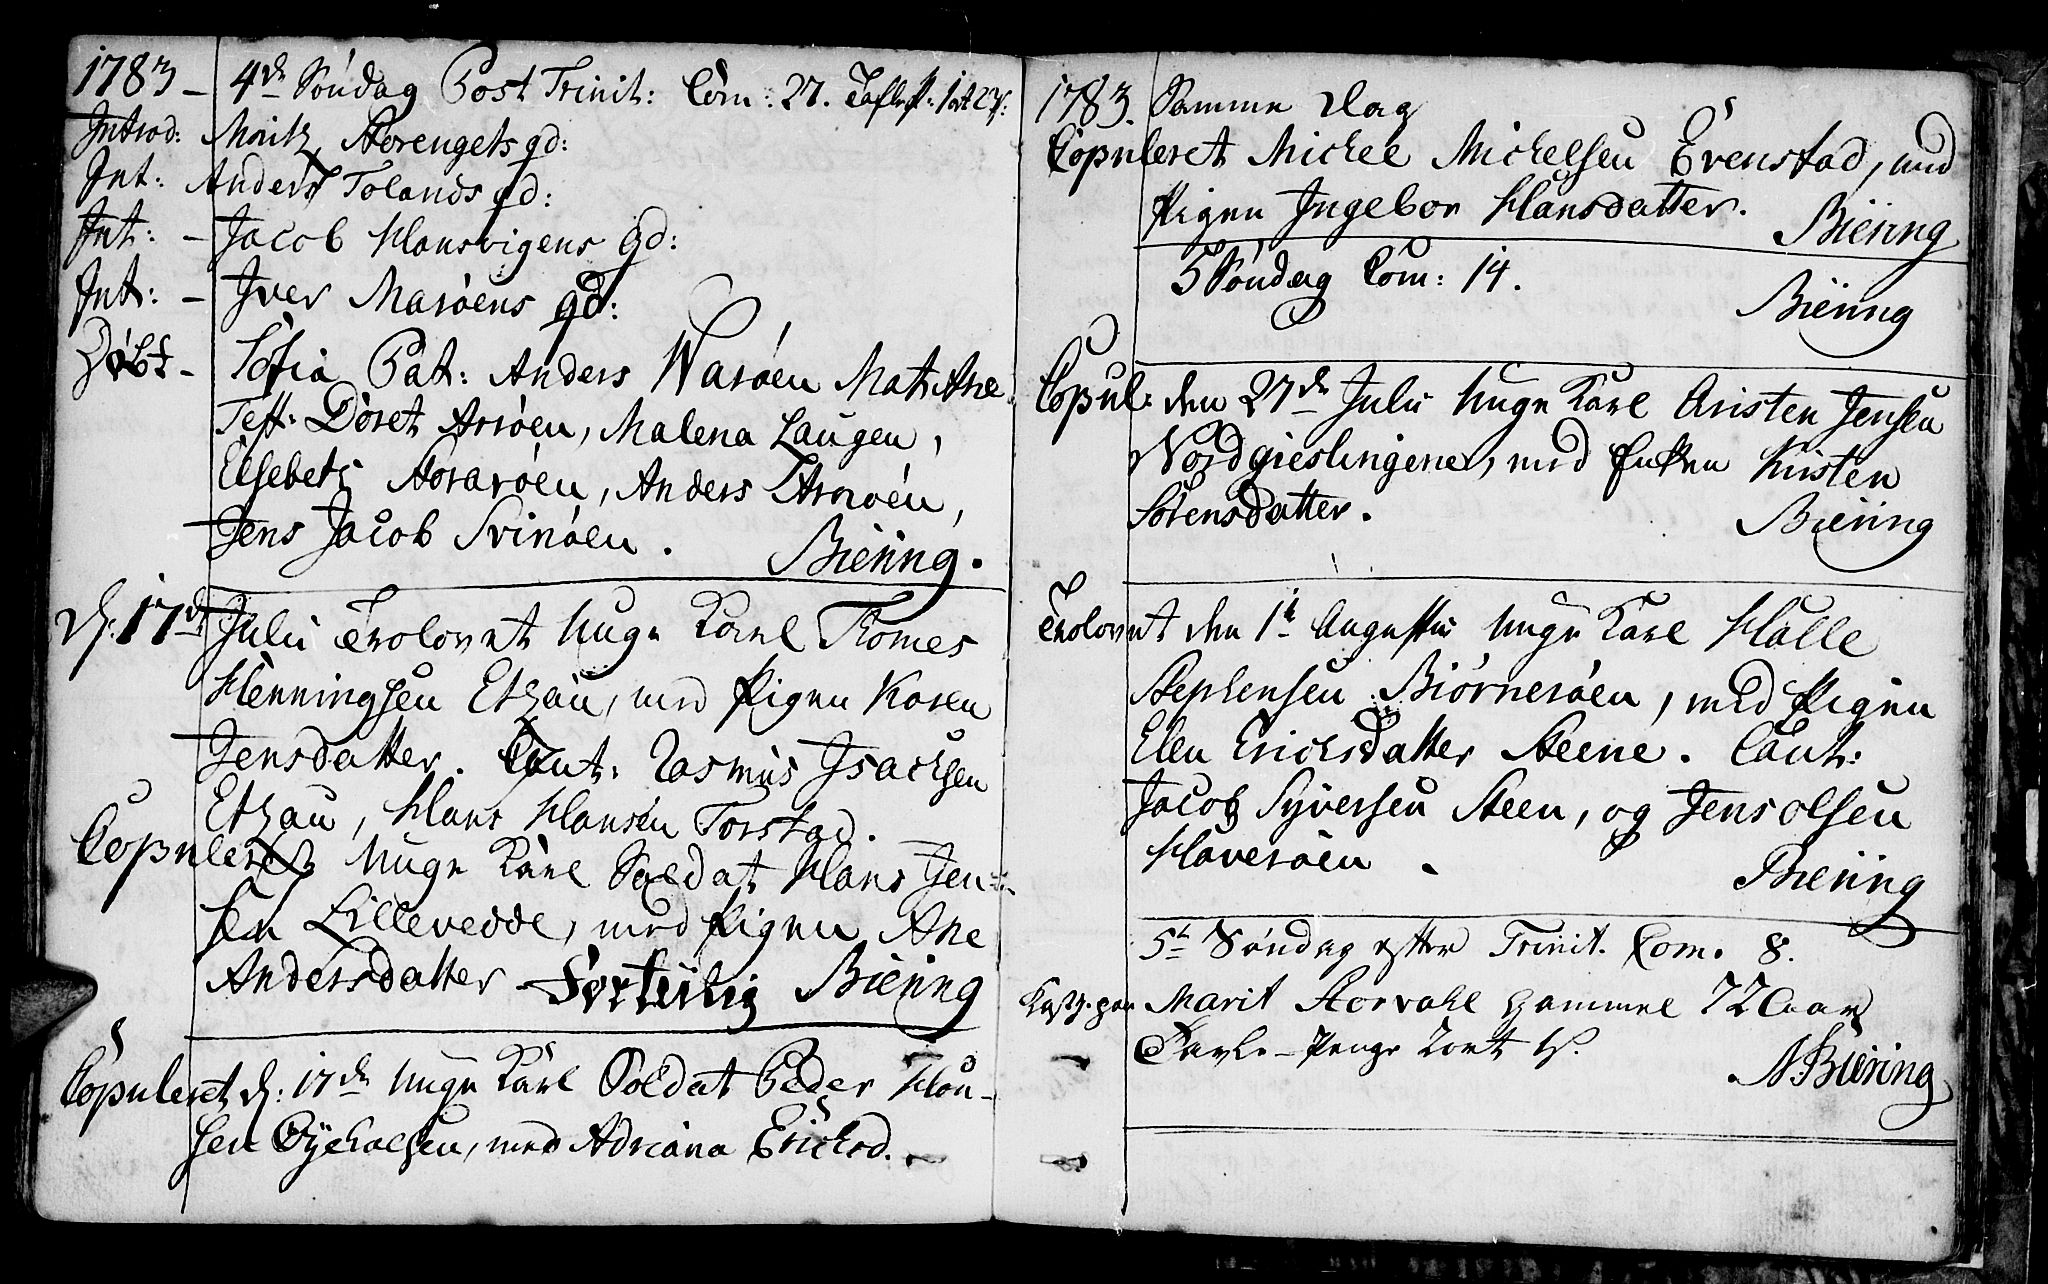 1783 – 4de Söndag Post Trinit: Com: 27.
Introd: Moritz Storengets qd:
Int: Anders Tolands qd:
Int: – Jacob Hansvigens qd:
Int: – Iver Marøens qd:
Döbt – Sofia Pat: Anders Warøen Mat: Ane
Test: Doret Arsøen, Malena Laugen,
Elsebet Aararøen, Anders
Jens Jacob Svinøen. Biering.
d: 17de Julii Trolovet Unge Karl Tomes
Henningsen Etzau, med Pigen Karen
Jensdatter. Caut: Rasmus Isachsen
Etzau, Hans Hansen Torstad.
Copuleret Unge Karl Soldat Hans Jen-
sen Lillevedde, med Pigen Ane
Andersdatter Biering
Copuleret d: 17de Unge Karl Soldat Peder Han-
sen med Adriana Ericksd.
1783. Samme Dag
Copuleret Mickel Mickelsen Evenstad, med
Pigen Ingebor Hansdatter. Biering
5 Söndag Com: 14.
Biering
Copul: den 27de Julii Unge Karl Cristen Jensen
Nordgieslingene, med Enken Kirsten
Sörensdatter. Biering
Trolovet den 1te Augustii Unge Karl Halle
Stephensen Biørnerøen, med Pigen
Elen Ericksdatter Steene. Caut:
Jacob Syversen Steen, og Jens Olsen
Haverøen. Biering
5te Söndag efter Trinit. Com. 8.
Marit Storvahl Gammel 72 Aar
Tavle-Penge
N Biering